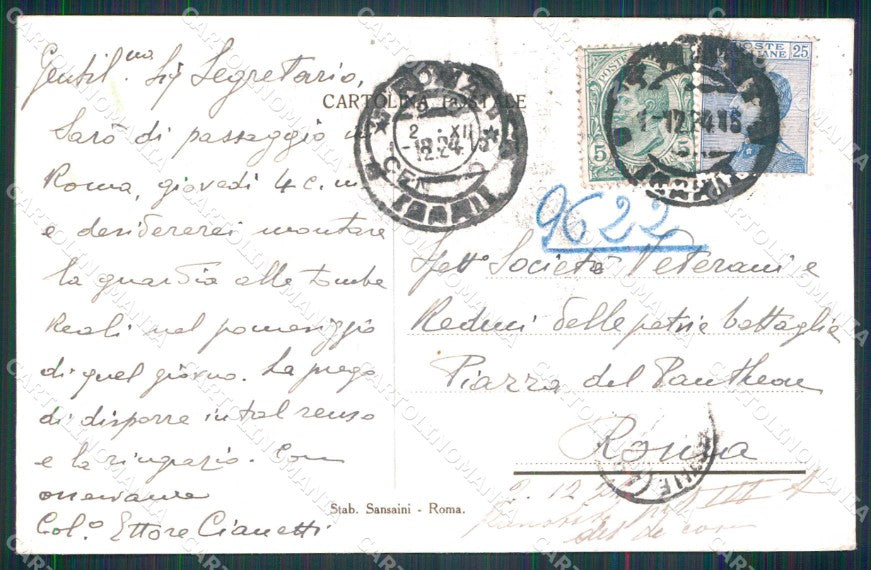 Gentil.mo Sig Segretario,
Sarò di passaggio in
Roma, giovedì 4 c.m.
e desidererei montare
la guardia alle tombe
Reali nel pomeriggio
di quel giorno. La prego
di disporre in tal senso
e la ringrazio. Con
osservanza
Col.o Ettore Cianetti
CARTOLINA POSTALE
ROMA
2 · XII
-18.24
CEN
POSTE
5
1-12.24.16
POSTE
25
9622
Spett. Società Veterani e
Reduci delle patrie battaglie
Piazza del Pantheon
Roma
2.12.2
Stab. Sansaini - Roma.
CARTOLINOMANIA